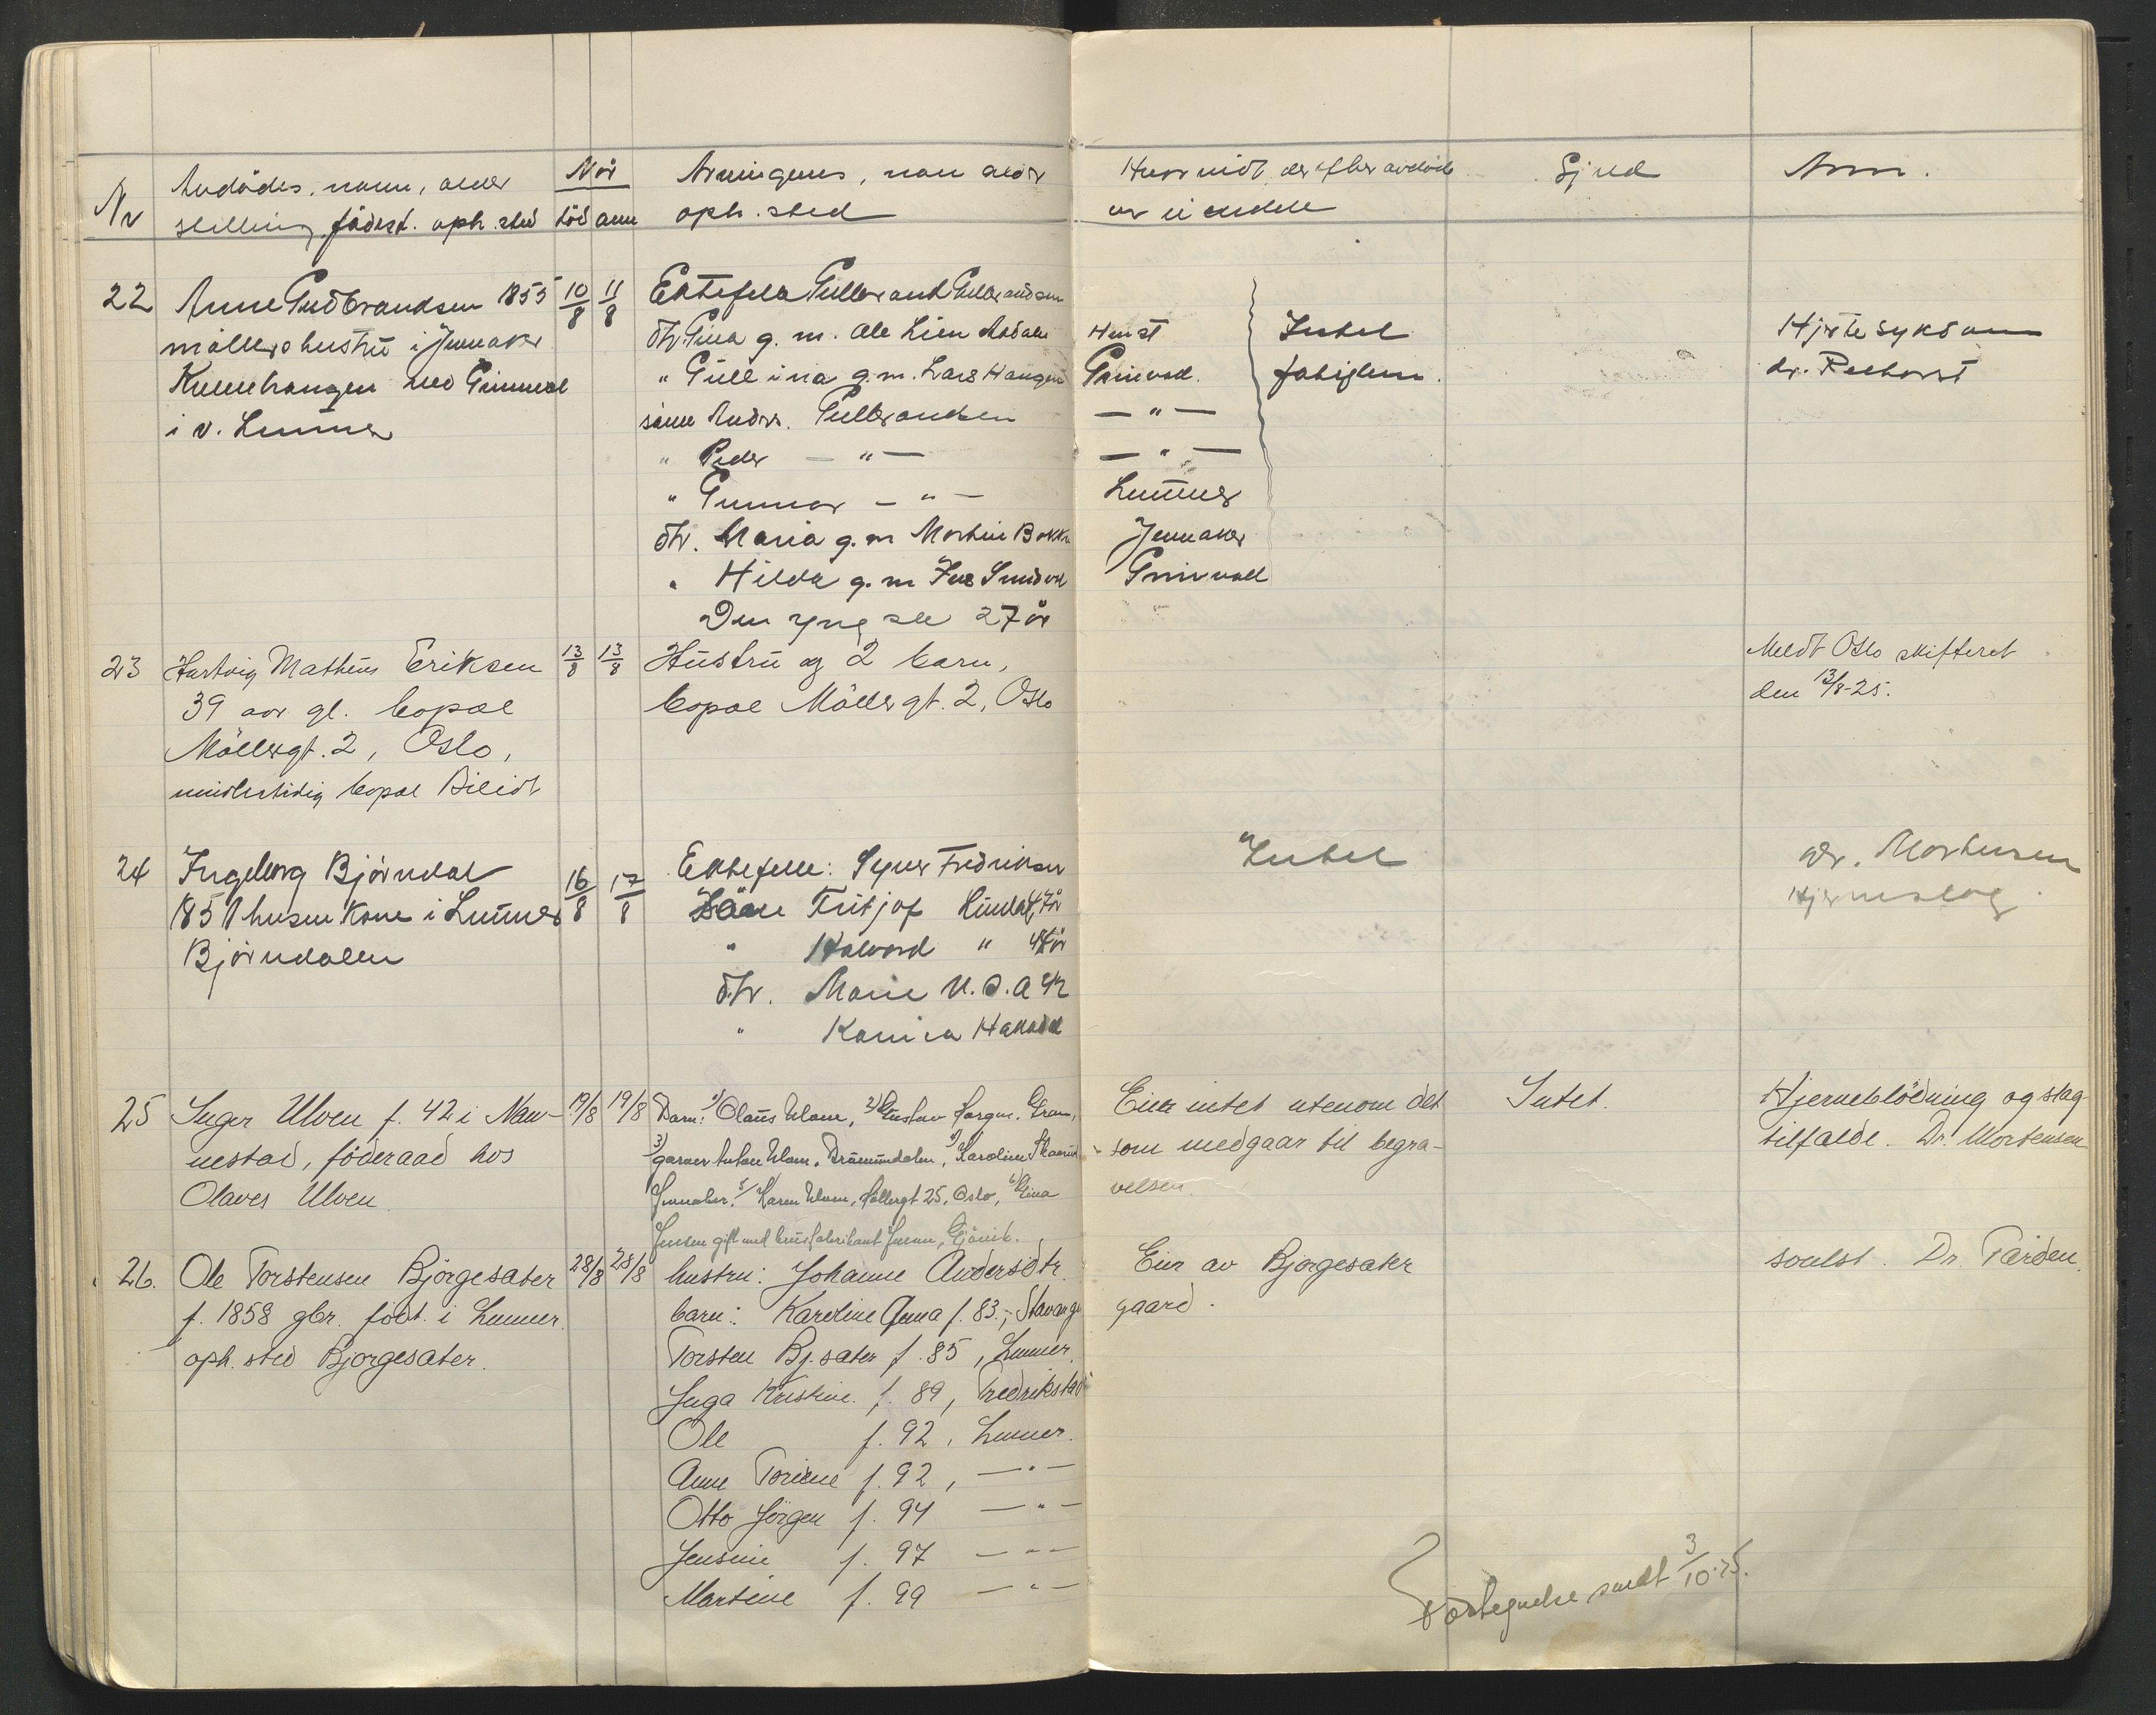 Nr
Avdödes. navn, alder
stilling, födest. oph. sted
Når
död anm
Arvingenes, navn alder
oph. sted
Hvorvidt der efter avdöde
er
Gjeld
Anm.
22
Anne Gudbrandsen 1855
möllers hustru i Jevnaker
ved Grinvoll
i v. Lunner
10/8
11/8
Ektefelle Gulbrand Gulbrandsen
dtr Gina g. m. Ole Lien
" Gullina g. m. Lars Haugen
sönn Anders. Gulbrandsen
" Peder — " —
" Gunnar — " —
dtr. Maria g. m Martin
" Hilda g. m
Den yngste 27 år
Grinvoll.
— " —
— " —
Lunner
Jevnaker
Grinvoll
Intet
Hjertesykdom
dr.
23
Hartvig Matheus Eriksen
39 aar gl. bopæl
Möllergt. 2, Oslo,
midlertidig bopæl Bileidt
13/8
13/8
Hustru og 2 barn,
bopæl Möllergt. 2, Oslo
Meldt Oslo skifteret
den 13/8-25.
24
Ingeborg Björndal
kone i Lunner
Björndalen
16/8
17/8
Ektefelle: Syver Fredriksen
Fritjof
" Halvord "
dtr. Marie U.S.A 42
"
Intet
Dr. Mortensen
Hjerneslag.
25
Inger Ulven f. 42 i Nan-
nestad, föderaad hos
Olaves Ulven
19/8
19/8
Barn: 1) Olaus Ulven, 2) Gustav Gran,
3) garver Anton Ulven, 4) Karoline
Jevnaker. 5) Karen Ulven, Möllergt 25, Oslo, 6) Gina
Jensen gift med brusfabrikant Jensen, Gjövik.
Eier intet utenom det
som medgaar til begra-
velsen.
Intet.
Hjerneblödning og slag-
tilfælde. Dr. Mortensen
26.
Ole Torstensen Björgesæter
f. 1858 gbr. födt. i Lunner.
oph. sted Bjorgesæter.
28/8
28/8
hustru: Johanne Andersdtr.
barn: Karoline Anna f. 83.,
Torsten Bj.sæter f. 85, Lunner.
Inga Kristine. f. 89, Fredrikstad
Ole f. 92, Lunner.
Anne Torine f. 92, — " —
Otto Jörgen f. 94 — " —
Jensine f. 97 — " —
Martine f. 99 — " —
Eier av Bjorgesæter
gaard.
Dr.
Fortegnelse sendt 3/10-25.